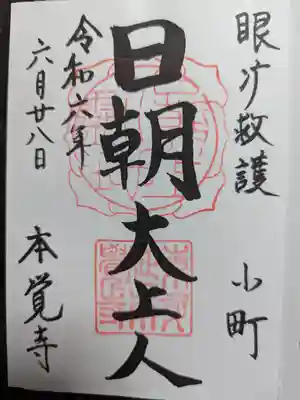 眼疒救護
小町
日朝大上人
令和六年
六月廿八日
本覚寺